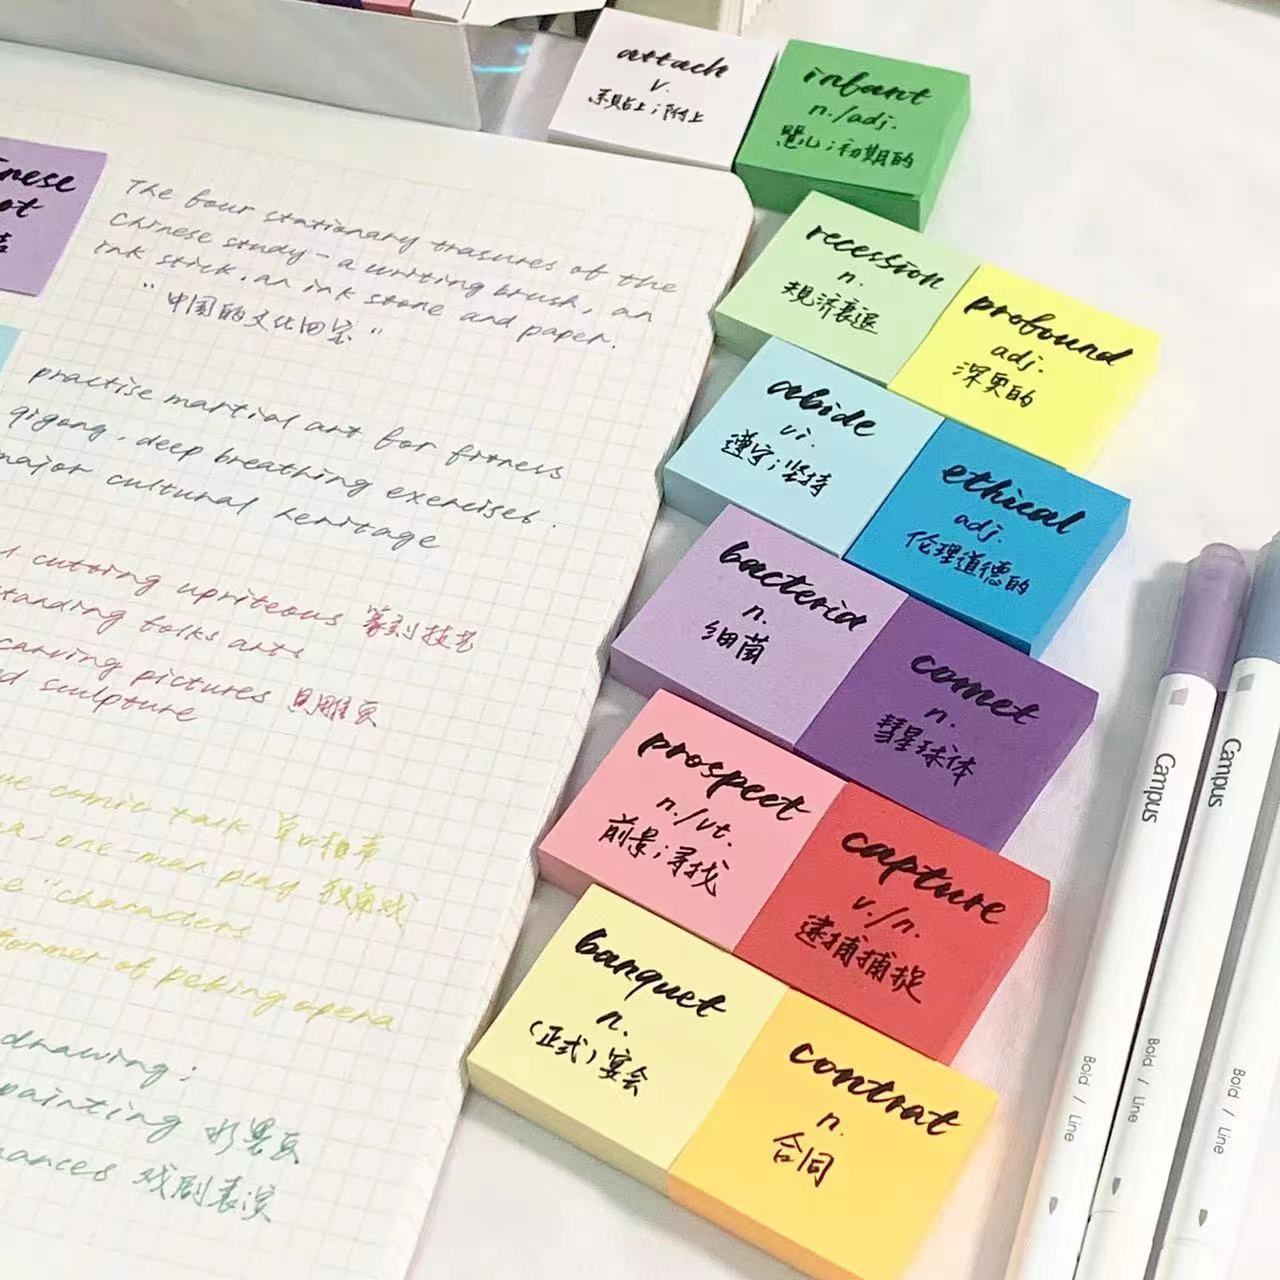 nese
ot
The four stationary trasures of the
Chinese study - a writing brush, an
ink stick, an ink stone and paper.
"中国的文化四宝"
practise martial art for fitness
qigong, deep breathing exercises.
major cultural heritage
cutting upriteous 篆刻技艺
standing folks arts
carving pictures
d sculpture
ue comic talk 单口相声
one-man play 独角戏
e "characters
former of peking opera
drawing;
painting 水墨画
mances 戏剧表演
attach
v.
系贴上;附上
infant
n./adj.
婴儿;初期的
recession
n.
衰退
profound
adj.
深奥的
abide
vi.
遵守;坚持
ethical
adj.
伦理道德的
bacteria
n.
细菌
comet
n.
彗星球体
prospect
n./vt.
前景;寻找
capture
v./n.
逮捕捕捉
banquet
n.
(正式)宴会
contrat
n.
合同
Campus
Bold / Line
Campus
Bold / Line
Bold / Line